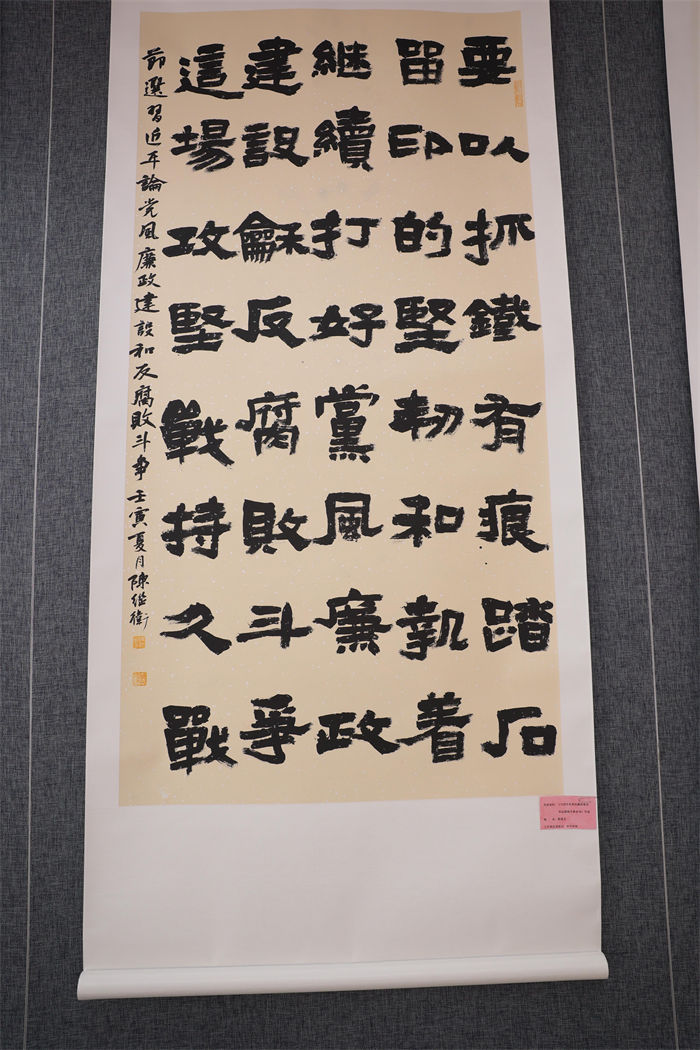 要以抓鐵有痕踏石
留印的堅韧和執着
継續打好黨風廉政
建設龢反腐敗斗爭
這場攻堅戰持久戰
节選習近平論党風廉政建設和反腐敗斗争 壬寅夏月 陳继衛